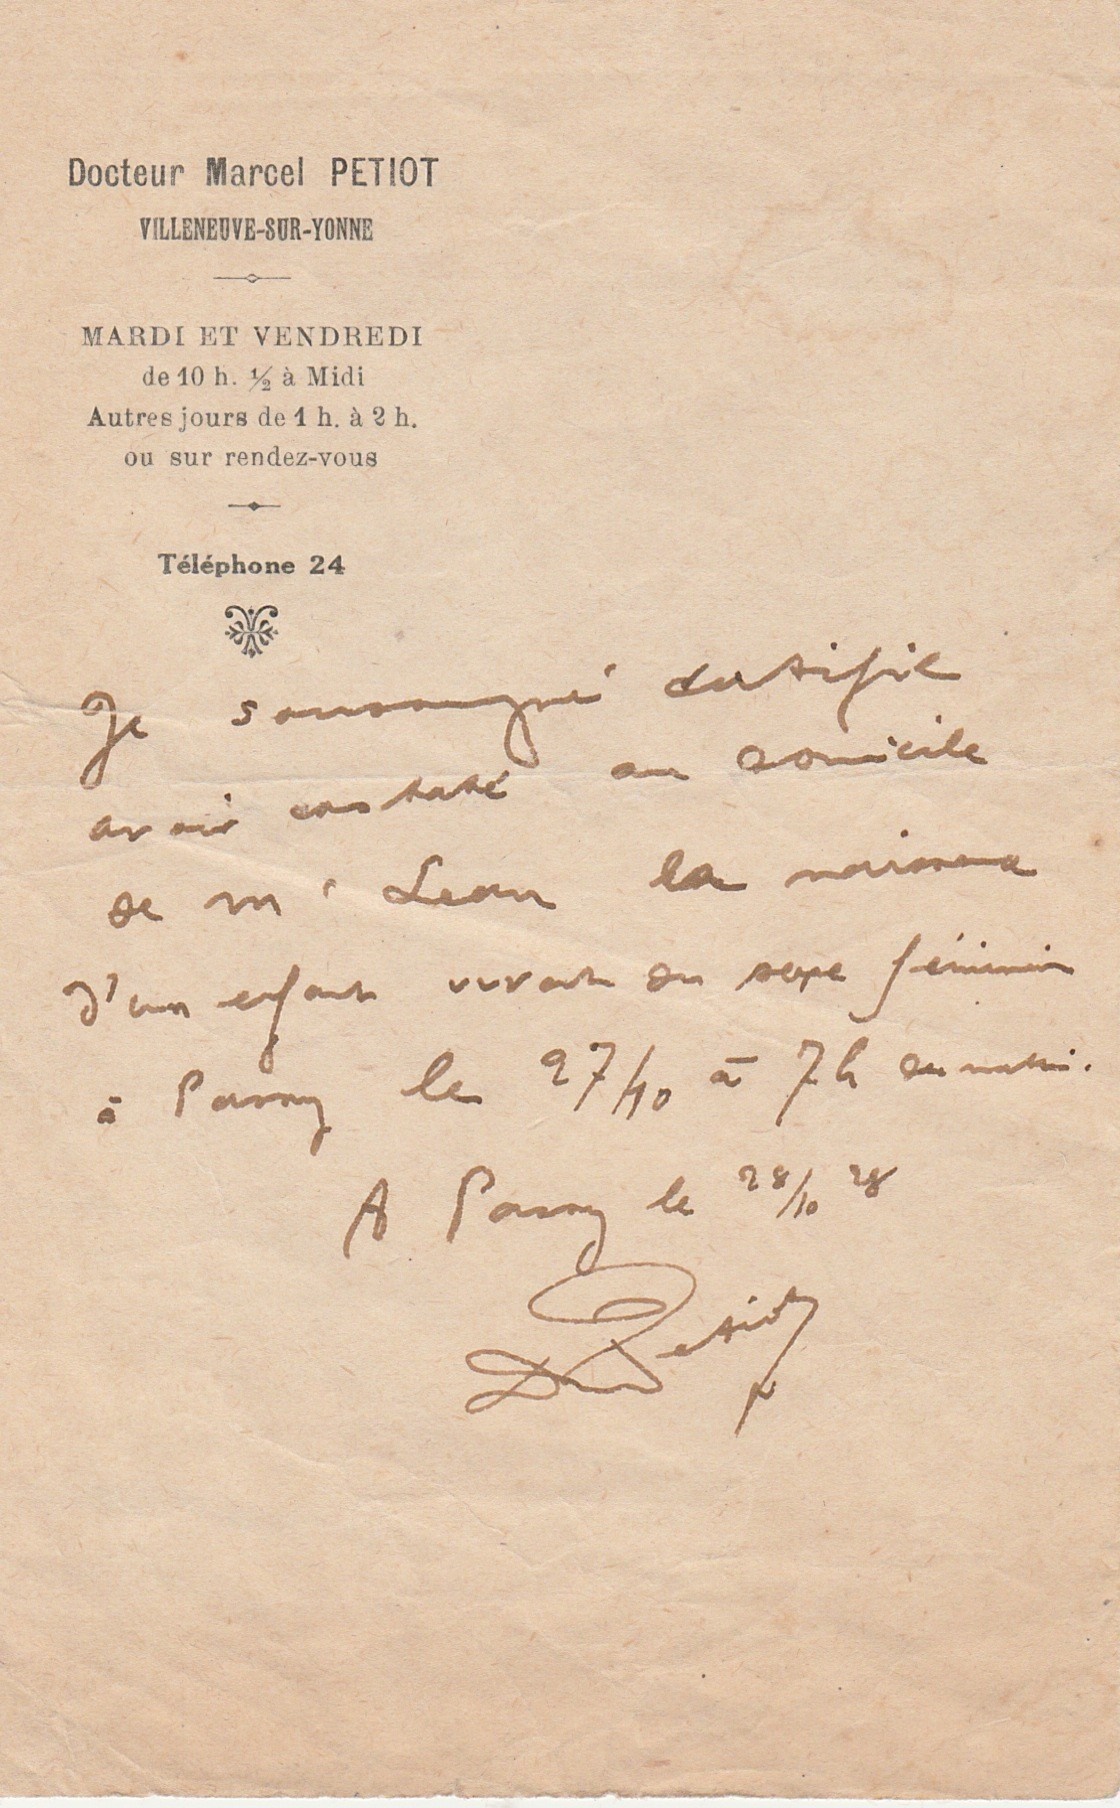 Docteur Marcel PETIOT
VILLENEUVE-SUR-YONNE
MARDI ET VENDREDI
de 10 h. ½ à Midi
Autres jours de 1 h. à 2 h.
ou sur rendez-vous
Téléphone 24
Je soussigné certifie
avoir constaté au domicile
de Mr Lean la naissance
d'un enfant vivant du sexe féminin
à Passy le 27/10 à 7h du matin.
A Passy le 28/10 28
Dr Petiot